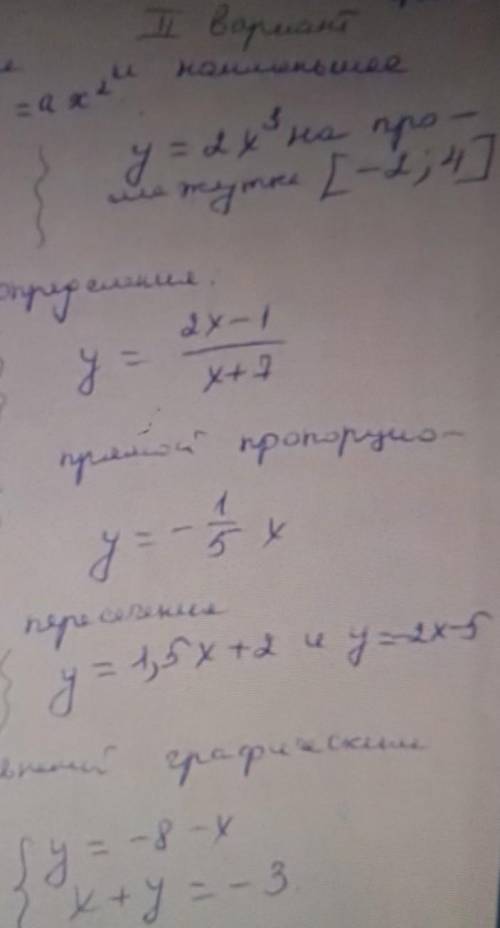 II вариант
= ax² и наименьшее
y = 2x³ на про-
межутке [-2; 4]
определения.
y = \frac{2x-1}{x+7}
прямой пропорцио-
y = -\frac{1}{5} x
пересечения
y = 1,5x + 2 и y = -2x-5
графическим
{ y = -8 - x
x + y = -3